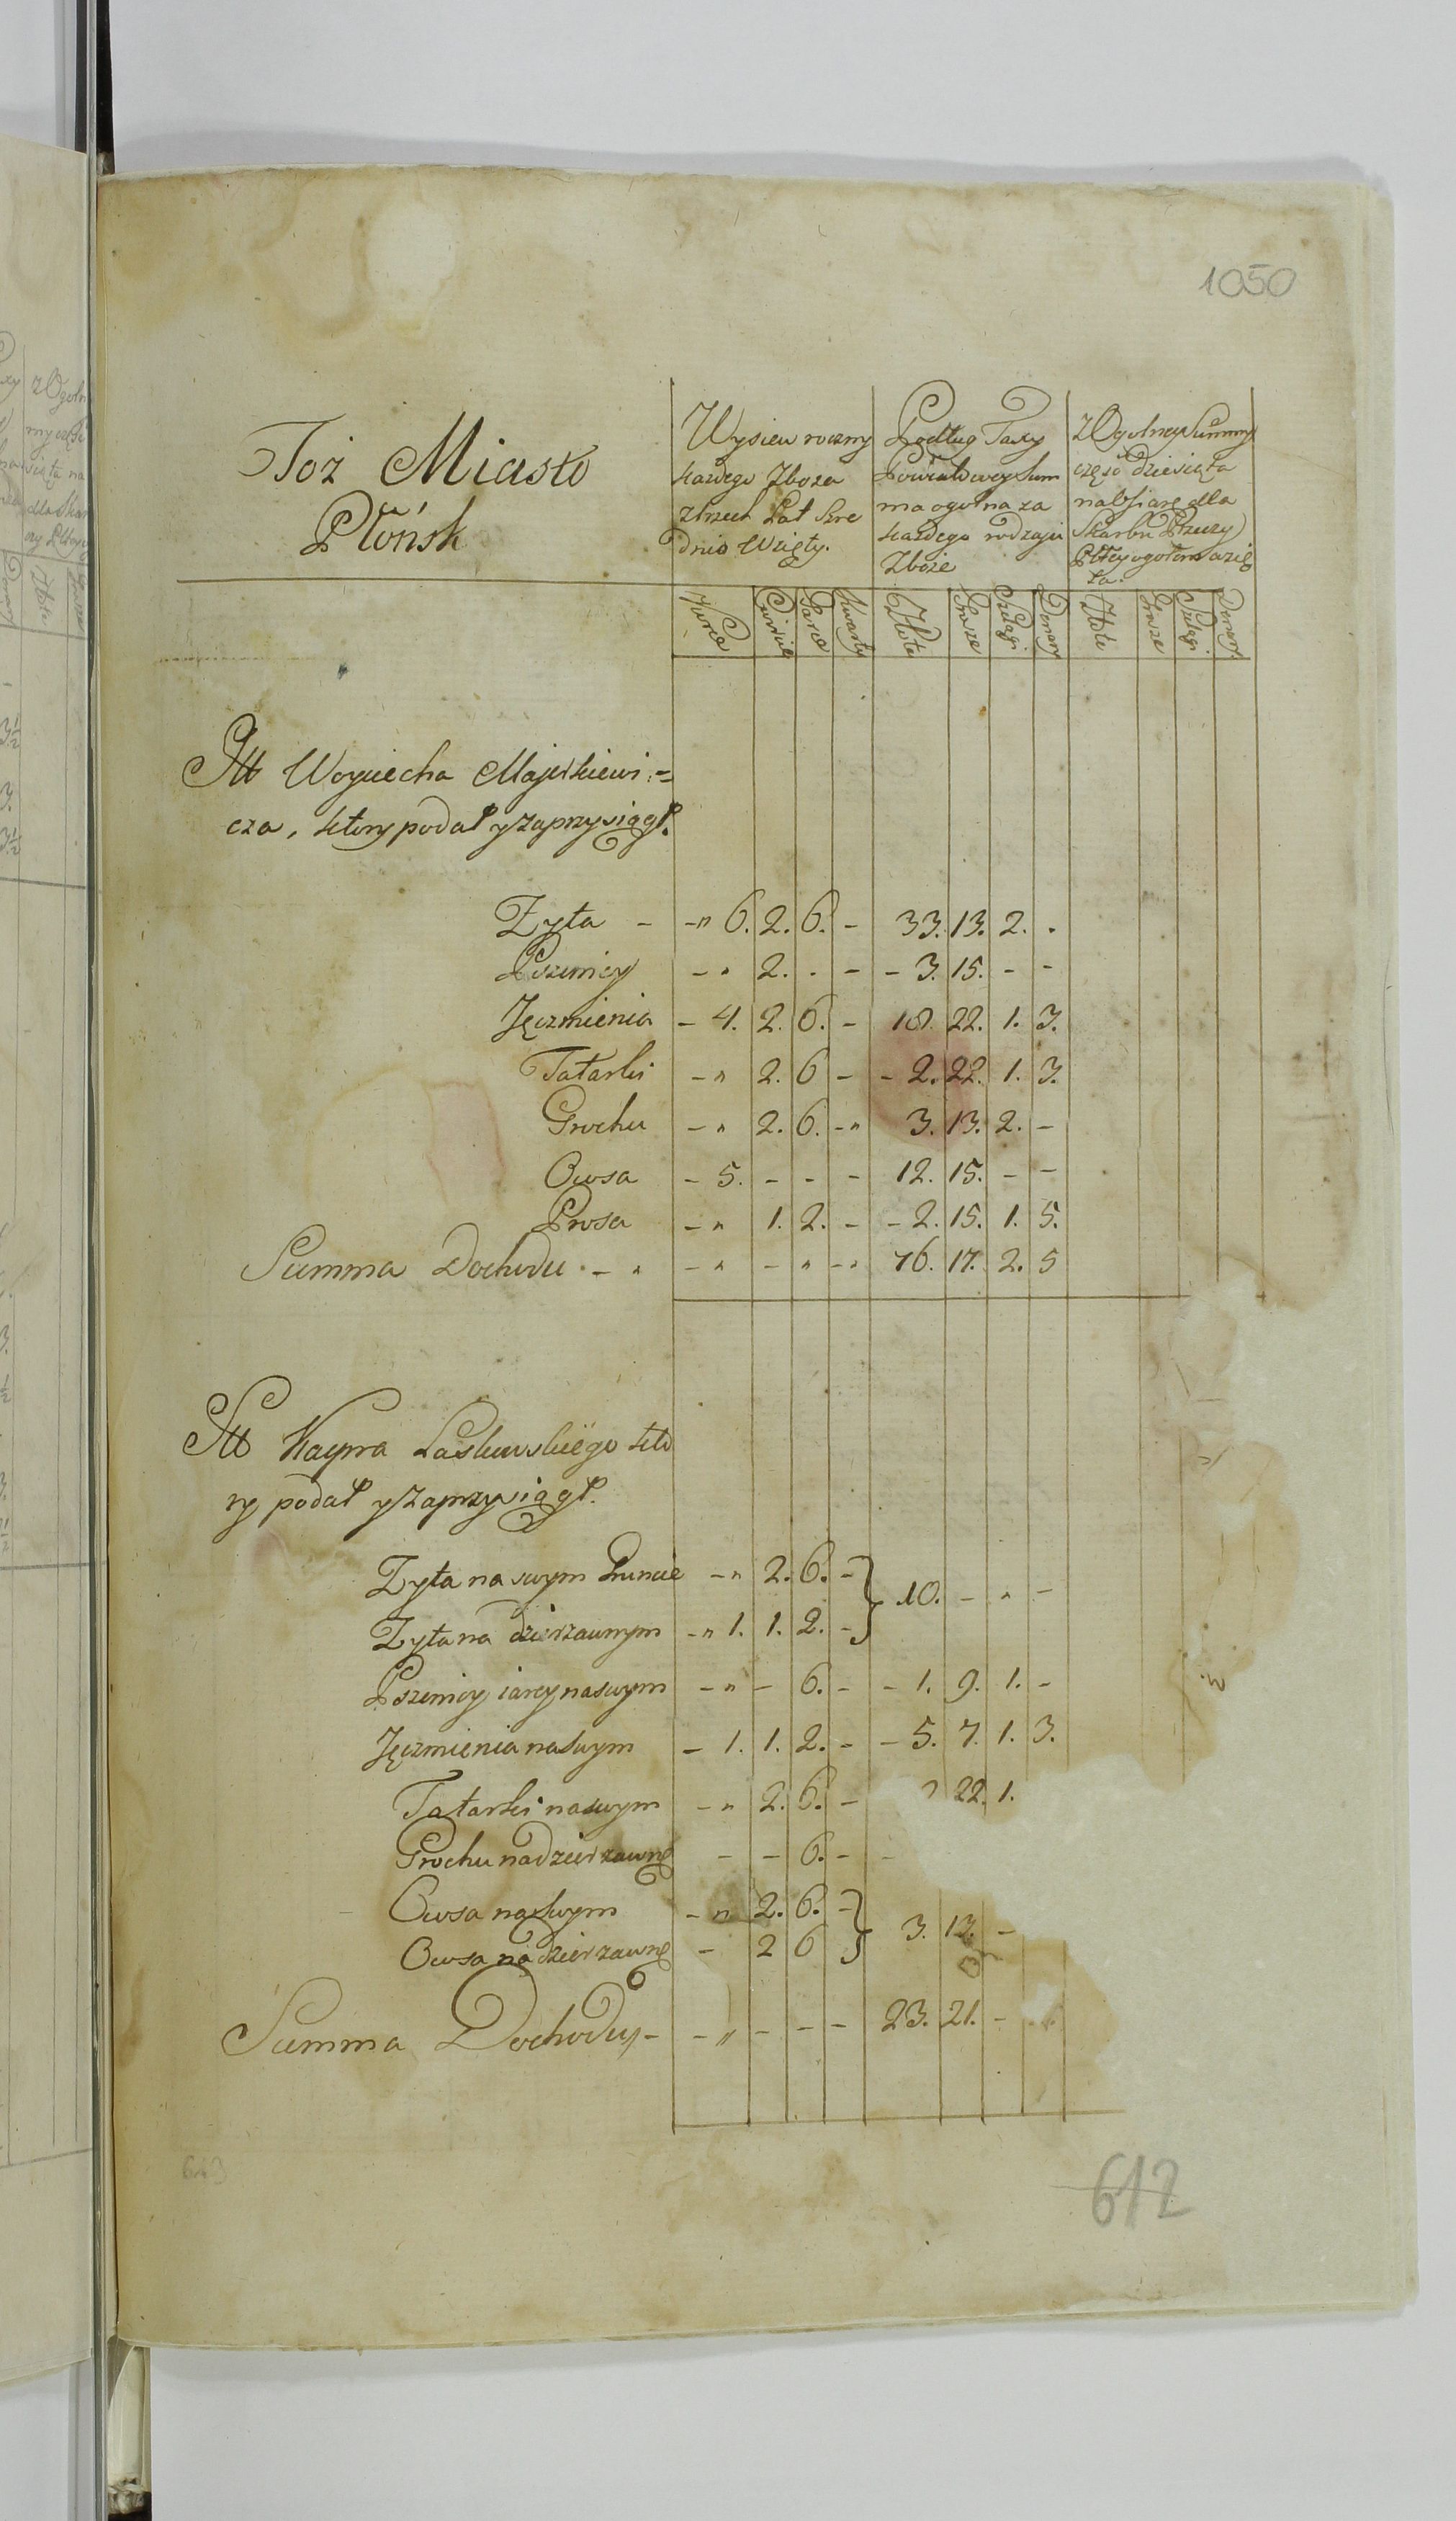 1050
Toż Miasto
Płońsk
Wysiew roczny
każdego Zboża
z trzech Lat Sre
dnio Wzięty.
Podług Taxy
Powiatowey Sum
ma ogolna za
każdego rodzaju
Zboże
z Ogolney Summy
częsć dziesiąta
na Ofiarę dla
Skarbu Przeszy
Pltey ogołem wzię
ta.
Korce Cwierci Garce Kwarty Złote Grosze Szelągi Denary Złote Grosze Szelągi Denary
Att Woyciecha Majerkiewi:=
cza, ktory podał y zaprzysiągł.
Zyta - -" 6. 2. 6. - 33. 13. 2. .
Pszenicy - " 2. . - - 3. 15. - -
Jęczmienia - 4. 2. 6. - 18. 22. 1. 3.
Tatarki - " 2. 6 - - 2. 22. 1. 3.
Grochu - " 2. 6. -" 3. 13. 2. -
Owsa - 5. - - - 12. 15. - -
Prosa - " 1. 2. - - 2. 15. 1. 5.
Summa Dochodu - " - " - " -" 76. 17. 2. 5
Att Kacpra Laskowskiego kto
ry podał y zaprzysiągł.
Zyta na swym Gruncie -" 2. 6. - } 10. - " -
Zyta na dzierzawnym -" 1. 1. 2. -
Pszenicy iarey na swym - " - 6. - - 1. 9. 1. -
Jęczmienia na swym - 1. 1. 2. - - 5. 7. 1. 3.
Tatarki na swym - " 2. 6. - 22. 1.
Grochu na dzierzawnę - - 6. - -
Owsa na swym - " 2. 6. - } 3. 13. -
Owsa na dzierzawnę - 2 6
Summa Dochodu - - " - - - 23. 21. -
643
612